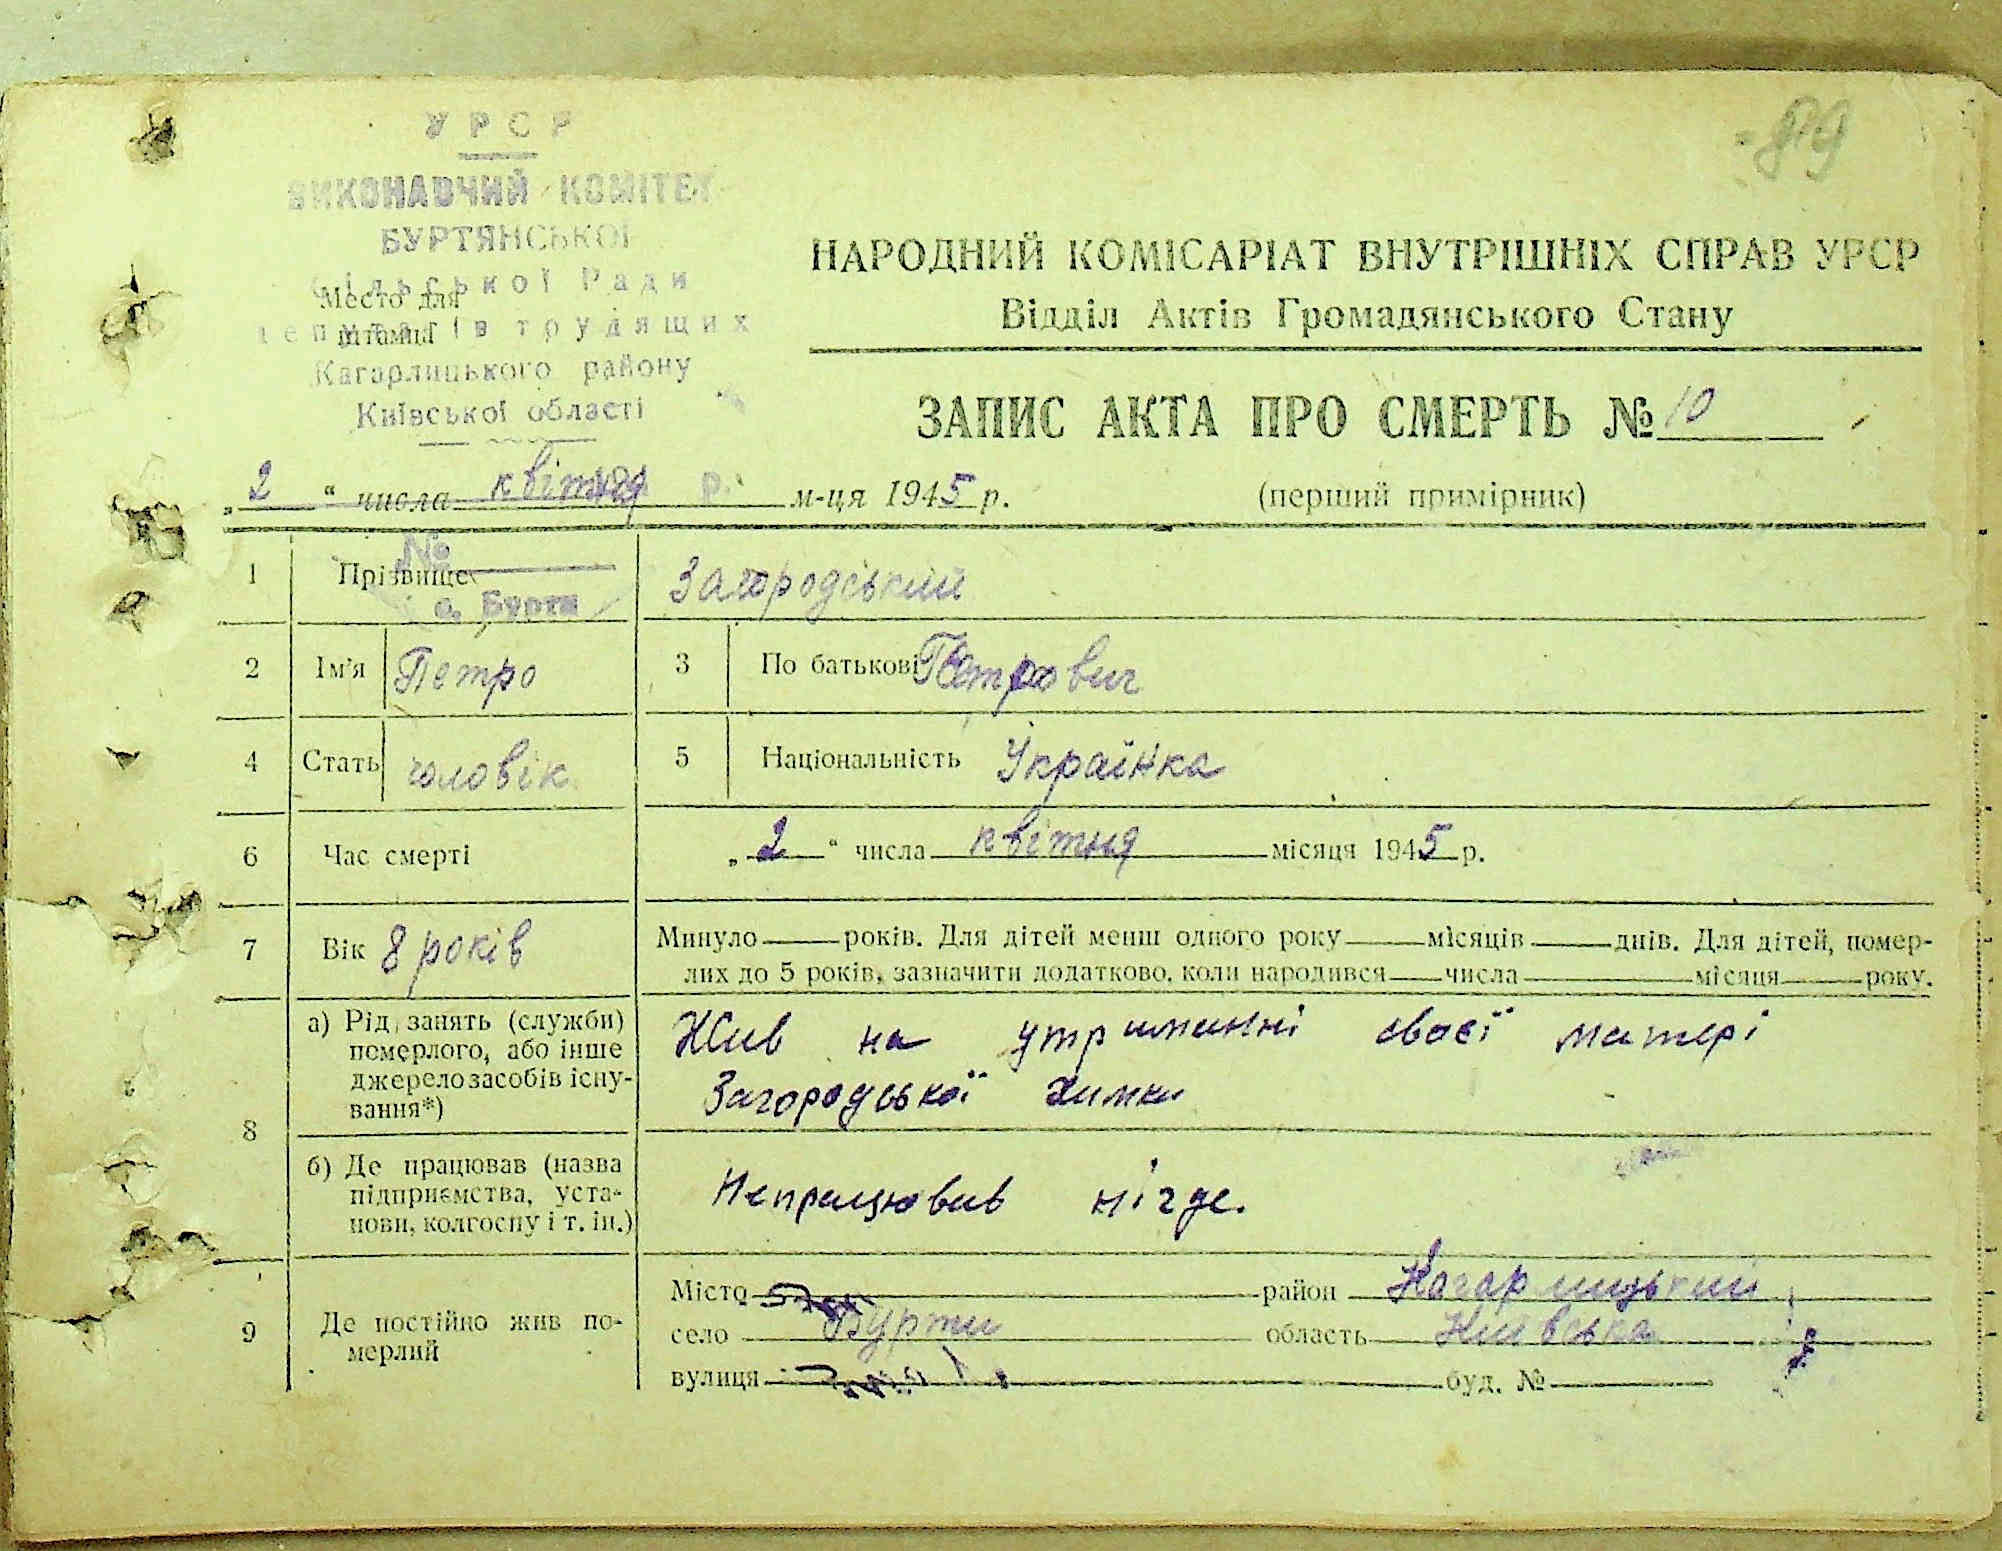 89
УРСР
ВИКОНАВЧИЙ КОМІТЕТ
БУРТЯНСЬКОЇ
Сільської Ради
депутатів трудящих
Кагарлицького району
Київської області
Место для
штампа
НАРОДНИЙ КОМІСАРІАТ ВНУТРІШНІХ СПРАВ УРСР
Відділ Актів Громадянського Стану
ЗАПИС АКТА ПРО СМЕРТЬ № 10
„2“ числа квітня м-ця 1945 р. (перший примірник)
№
с. Бурти
1 Прізвище Загородський
2 Ім'я Петро 3 По батькові Петрович
4 Стать чоловік 5 Національність Українка
6 Час смерті „2“ числа квітня місяця 1945 р.
7 Вік 8 років Минуло років. Для дітей менш одного року місяців днів. Для дітей, помер-
лих до 5 років, зазначити додатково, коли народився числа місяця року.
8 а) Рід занять (служби)
померлого, або інше
джерело засобів існу-
вання*)
Жив на утриманні своєї матері
Загородської Химки
б) Де працював (назва
підприємства, уста-
нови, колгоспу і т. ін.)
Непрацював нігде.
9 Де постійно жив по-
мерлий
Місто район Кагарлицький
село Бурти область Київська
вулиця буд. №